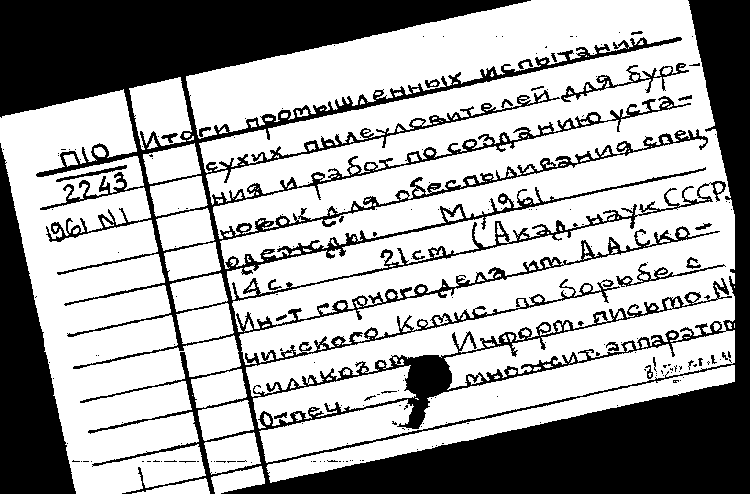 Итоги промышленных испытаний
П10 сухих пылеуловителей для буре-
2243 ния и работ по созданию уста-
1961 N1 новок для обеспыливания спец-
одежды. М., 1961.
14 с. 21 см. (Акад. наук СССР.
Ин-т горного дела им. А.А. Ско-
чинского. Комис. по борьбе с
силикозом. Информ. письмо. N
Отпеч. множит. аппаратом